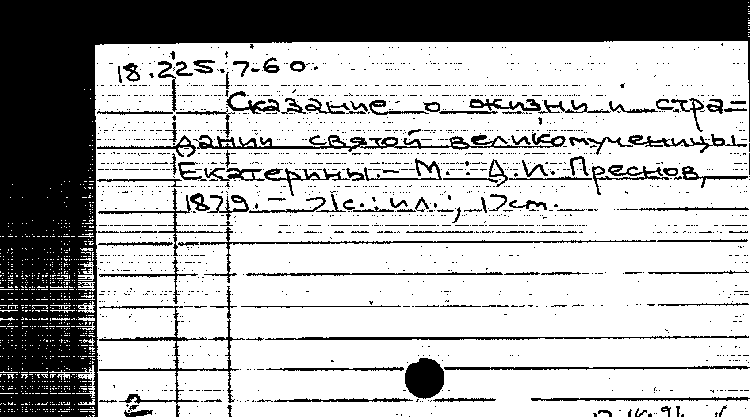 18.225.7.60.
Сказание о жизни и стра-
дании святой великомученицы
Екатерины.- М. : Д.И. Преснов,
1879. - 71с. : ил. ; 17см.
2